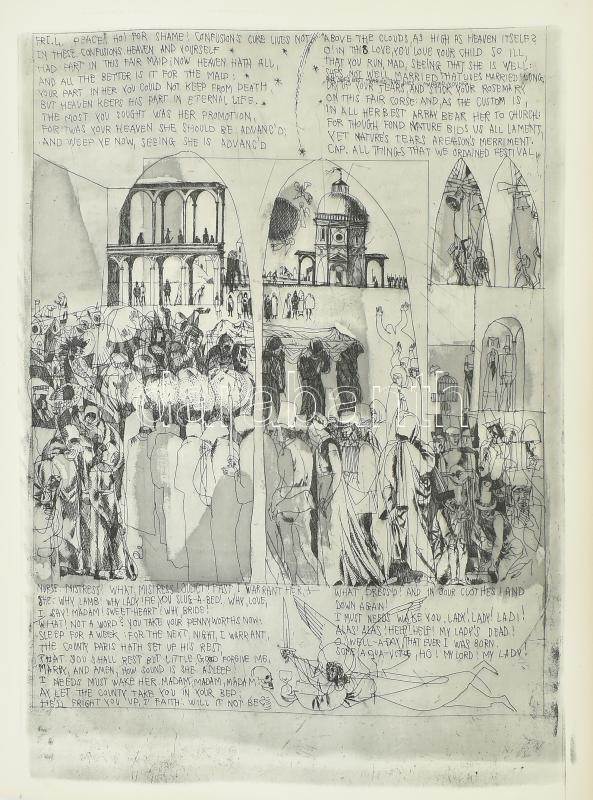 FRI.L. PEACE, HO! FOR SHAME! CONFUSION'S CURE LIVES NOT
IN THESE CONFUSIONS. HEAVEN AND YOURSELF
HAD PART IN THIS FAIR MAID; NOW HEAVEN HATH ALL,
AND ALL THE BETTER IS IT FOR THE MAID:
YOUR PART IN HER YOU COULD NOT KEEP FROM DEATH,
BUT HEAVEN KEEPS HIS PART IN ETERNAL LIFE.
THE MOST YOU SOUGHT WAS HER PROMOTION,
FOR 'TWAS YOUR HEAVEN SHE SHOULD BE ADVANC'D;
AND WEEP YE NOW, SEEING SHE IS ADVANC'D
ABOVE THE CLOUDS, AS HIGH AS HEAVEN ITSELF?
O! IN THIS LOVE, YOU LOVE YOUR CHILD SO ILL,
THAT YOU RUN MAD, SEEING THAT SHE IS WELL:
SHE'S NOT WELL MARRIED THAT LIVES MARRIED LONG,
DRY UP YOUR TEARS AND STICK YOUR ROSEMARY
ON THIS FAIR CORSE: AND, AS THE CUSTOM IS,
IN ALL HER BEST ARRAY BEAR HER TO CHURCH:
FOR THOUGH FOND NATURE BIDS US ALL LAMENT,
YET NATURE'S TEARS ARE REASON'S MERRIMENT.
CAP. ALL THINGS THAT WE ORDAINED FESTIVAL,
darabanth
NURSE. MISTRESS! WHAT, MISTRESS! JULIET! FAST, I WARRANT HER,
SHE: WHY, LAMB! WHY, LADY! FIE, YOU SLUG-A-BED! WHY, LOVE,
I SAY! MADAM! SWEET-HEART! WHY, BRIDE!
WHAT! NOT A WORD? YOU TAKE YOUR PENNYWORTHS NOW:
SLEEP FOR A WEEK; FOR THE NEXT NIGHT, I WARRANT,
THE COUNTY PARIS HATH SET UP HIS REST,
THAT YOU SHALL REST BUT LITTLE. GOD FORGIVE ME,
MARRY, AND AMEN, HOW SOUND IS SHE ASLEEP!
I NEEDS MUST WAKE HER. MADAM, MADAM, MADAM!
AY, LET THE COUNTY TAKE YOU IN YOUR BED;
HE'LL FRIGHT YOU UP, I' FAITH. WILL IT NOT BE?
WHAT, DRESS'D! AND IN YOUR CLOTHES! AND
DOWN AGAIN!
I MUST NEEDS WAKE YOU. LADY! LADY! LADY!
ALAS! ALAS! HELP! HELP! MY LADY'S DEAD!
O, WELL-A-DAY, THAT EVER I WAS BORN.
SOME AQUA-VITAE, HO! MY LORD! MY LADY!